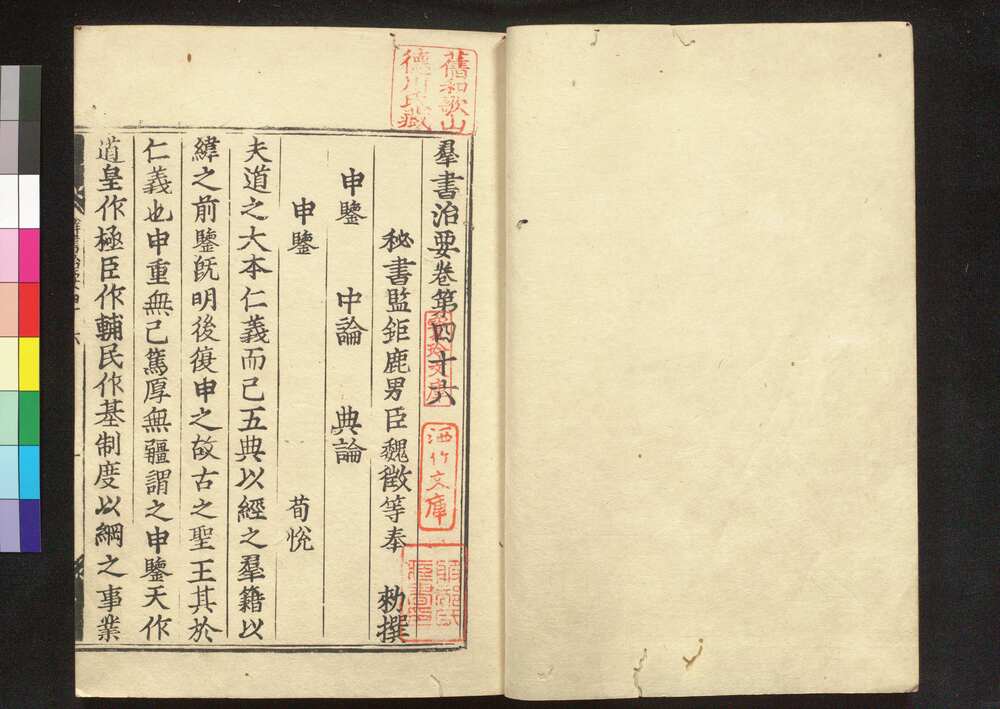 羣書治要卷第四十六
秘書監鉅鹿男臣魏徵等奉 勑撰
申鑒 中論 典論
申鑒 荀悅
夫道之大本仁義而已五典以經之羣籍以
緯之前鑒旣明後復申之故古之聖王其於
仁義也申重無已篤厚無疆謂之申鑒天作
道皇作極臣作輔民作基制度以綱之事業
舊和歌山
德川氏藏
洒竹文庫